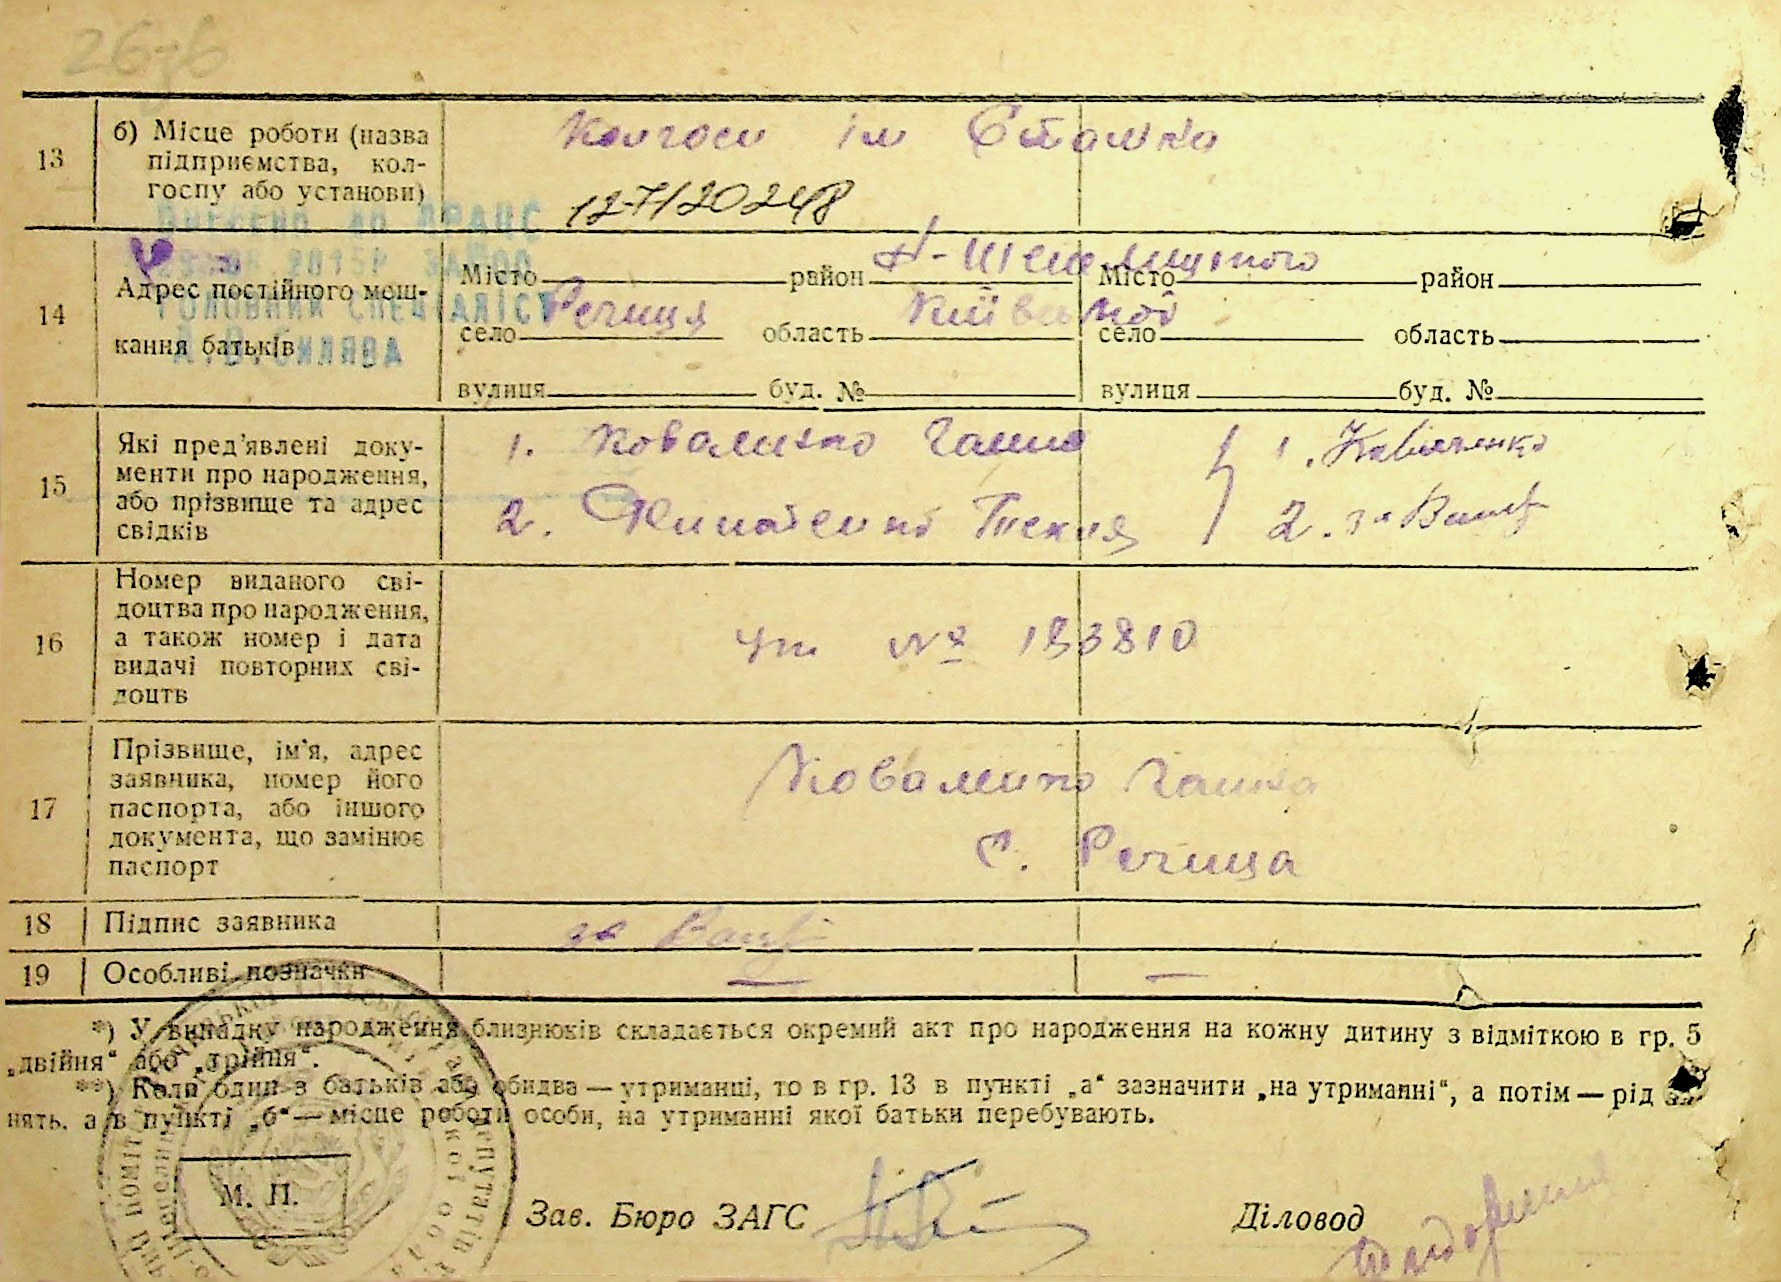 26зб
13
б) Місце роботи (назва
підприємства, кол-
госпу або установи)
Колгосп ім
127/20248
ВНЕСЕНО до ДРАЦС
ГОЛОВНИЙ СПЕЦІАЛІСТ
14
Адрес постійного меш-
кання батьків
Місто район Місто район
село Речиця область Київської село область
вулиця буд. № вулиця буд. №
15
Які пред’явлені доку-
менти про народження,
або прізвище та адрес
свідків
1. Коваленко Ганна 1. Коваленко
2. Текля 2. за
16
Номер виданого сві-
доцтва про народження,
а також номер і дата
видачі повторних сві-
доцтв
№ 193810
17
Прізвище, ім’я, адрес
заявника, номер його
паспорта, або іншого
документа, що замінює
паспорт
Коваленко Ганна
с. Речица
18 Підпис заявника
за
19 Особливі позначки — —
*) У випадку народження близнюків складається окремий акт про народження на кожну дитину з відміткою в гр. 5
„двійня“ або „трійня“.
**) Коли один з батьків або обидва — утриманці, то в гр. 13 в пункті „а“ зазначити „на утриманні“, а потім — рід за-
нять. а в пункті „б“ — місце роботи особи, на утриманні якої батьки перебувають.
М. П.
Зав. Бюро ЗАГС
Діловод